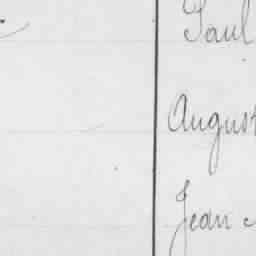 Paul
August
Jean